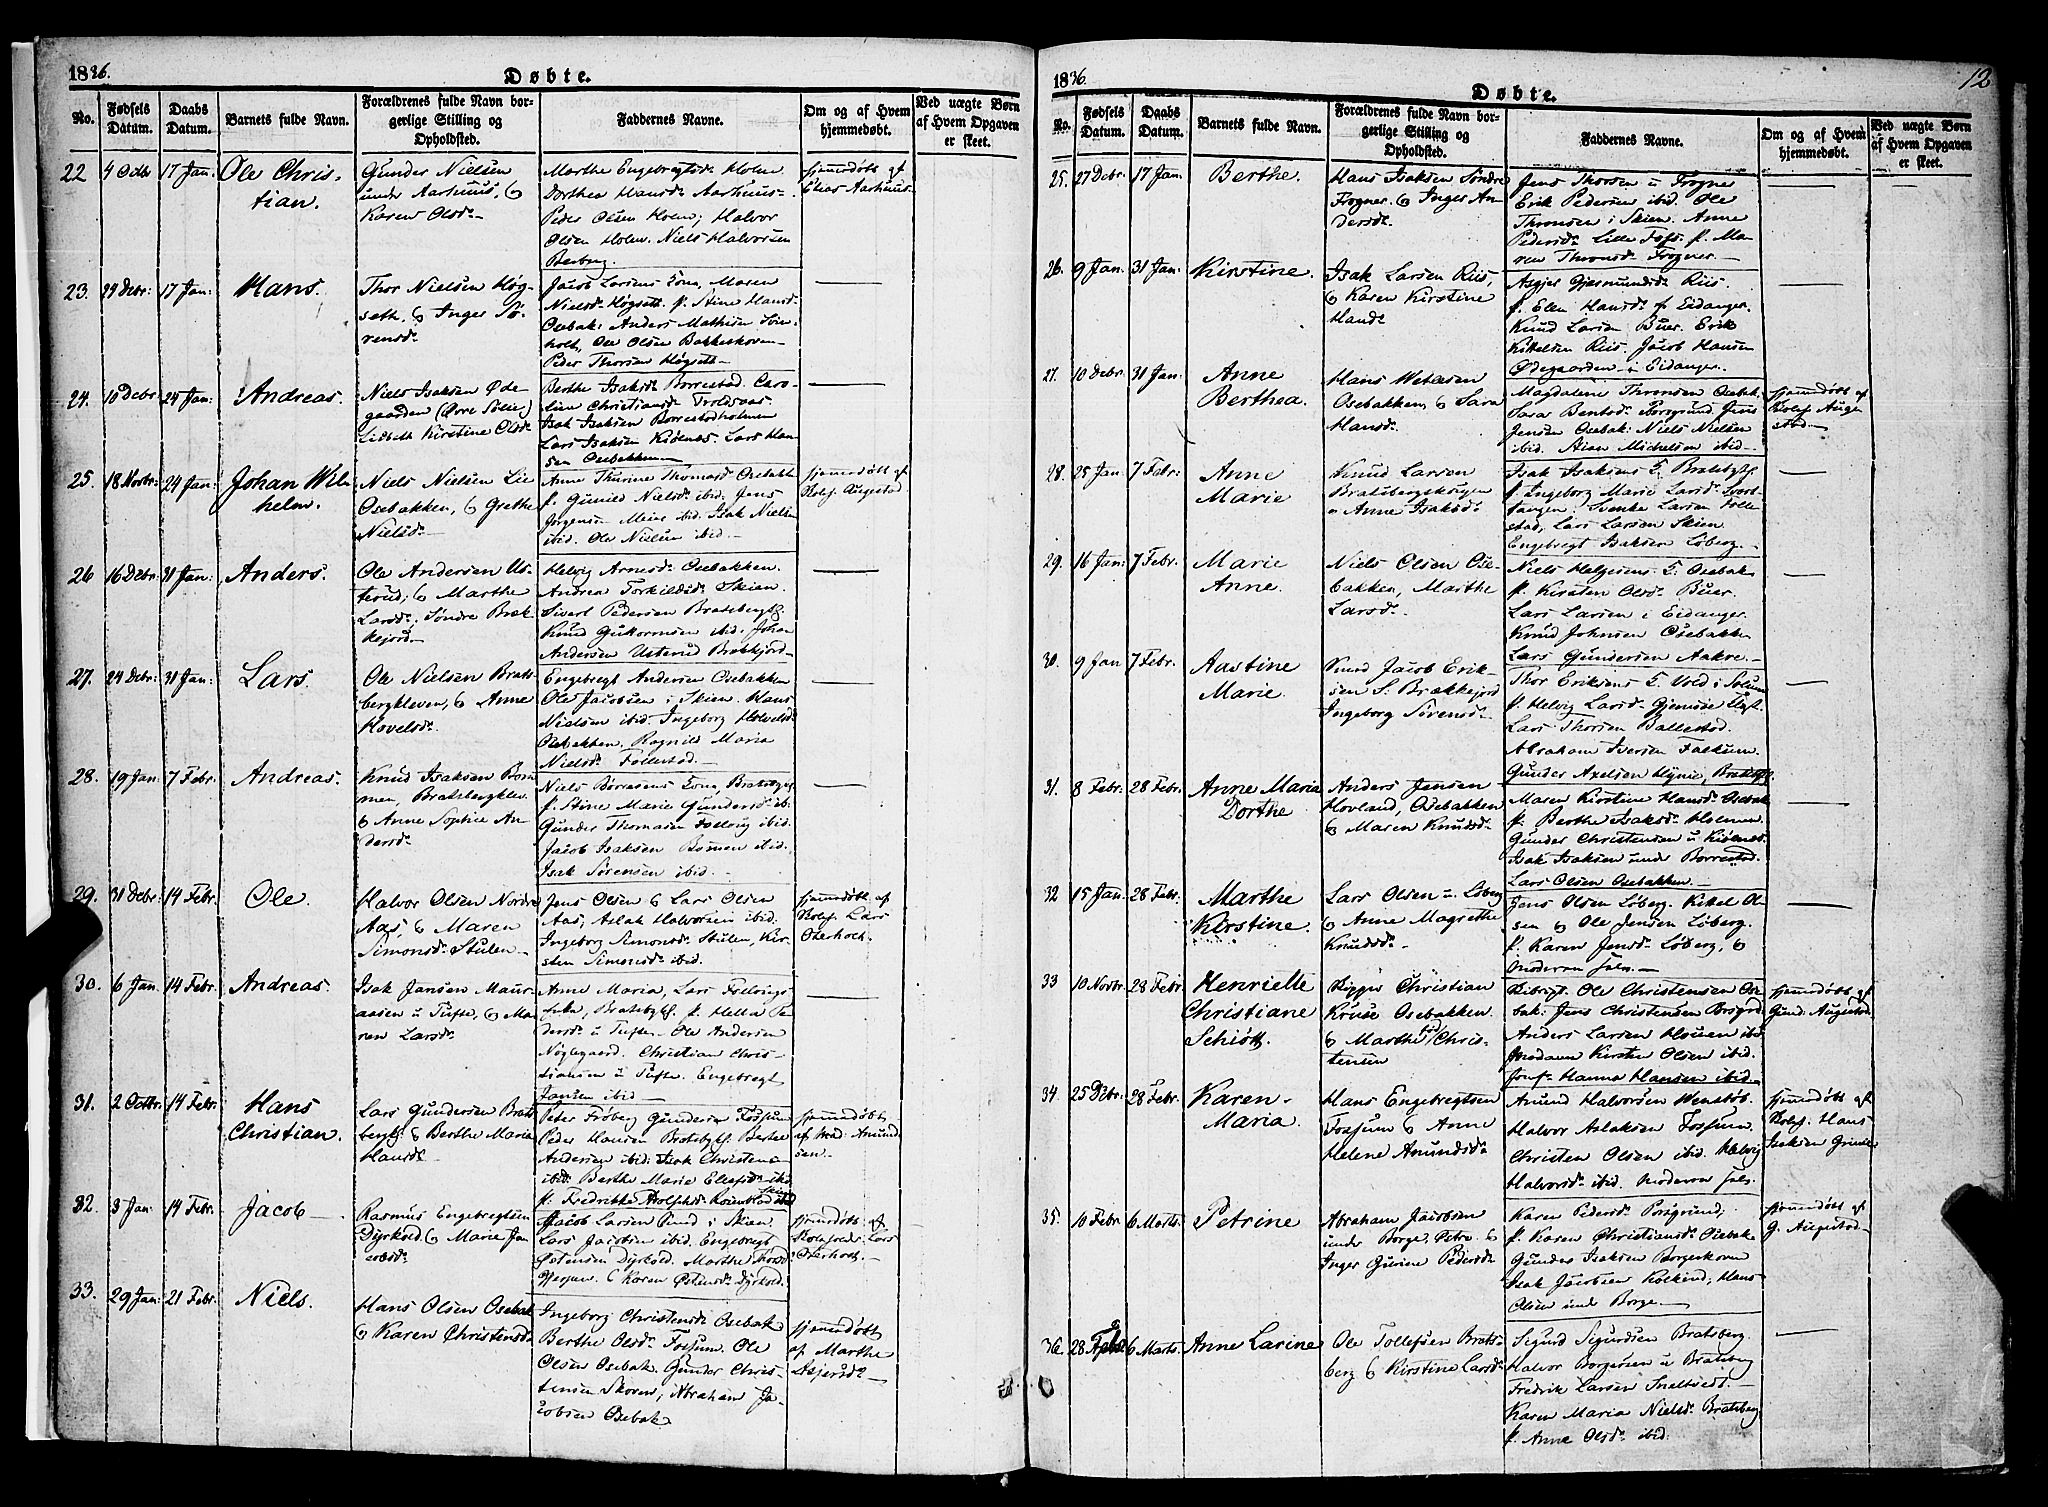 1836.
Døbte.
No.
Fødsels Datum.
Daabs Datum.
Barnets fulde Navn.
Forældrenes fulde Navn borgerlige Stilling og Opholdsted.
Faddernes Navne.
Om og af Hvem hjemmedøbt.
Ved uægte Børn af Hvem Opgaven er skeet.
22 4 Octb 17 Jan. Ole Chris-
tian.
Gunder Nielsen
under Aarhuus, &
Karen Olsd.
Marthe Engebregtsd. Holm
Dorthea Hansd. Aarhuus
Peder Olsen Holm, Halvor
Olsen Holm. Niels Halvorsen
Berberg.
hjemmedøbt af
Elias Aarhuus
23. 24 Debr: 17 Jan: Hans.
Thor Nielsen Høg-
seth, & Inger Sø-
rensd.
Jacob Larsens Kone, Maren
Nielsd. Høgseth. p. Stine Hansd.
Osebak: Anders Mathisen
Ole Olsen Bakkeskoven
Peder Thorsen Høgseth
24. 10 Debr: 24 Jan: Andreas.
Niels Isaksen Øde-
gaarden
Lisbeth Kirstine Olsd.
Berthe Isaksd. Borrestad. Caro-
line Christiansd. Troldsaas
Isak Isaksen Borrestadholmen
Lars Isaksen Kiønes. Lars Han-
sen Osebakken
25. 18 Novbr: 24 Jan: Johan Wil-
helm.
Niels Nielsen Lie
Osebakken, & Grethe
Nielsd.
Anne Thurine Thomasd. Osebakk.
p. Gunild Nielsd. ibid. Jens
Jørgensen Meine ibid. Isak Nielsen
ibid. Ole Nielsen ibid.
hjemmedøbt af
Kolpf. Augestad.
26 16 Debr: 31 Jan: Anders.
Ole Andersen Us-
terud, & Marthe
Larsd. Søndre Bræk-
kejord
Helvig Arnesd. Osebakken.
Andrea Torkildsd. Skien.
Sivert Pedersen Bratsbergkl.
Knud Guttormsen ibid. Johan
Andersen Usterud Brækkjord
27. 24 Debr: 31 Jan: Lars.
Ole Nielsen Brats-
bergkleven, & Anne
Hovelsd.
Engebregt Andersen Osebakken
Ole Jacobsen i Skien. Hans
Nielsen ibid. Ingeborg Holvelsd.
Osebakken. Ragnild Maria
Nielsd. Follestad.
28. 19 Jan: 7 Febr. Andreas.
Knud Isaksen Bom-
men, Bratsbergklev.
& Anne Sophie An-
dersd.
Niels Børresens Kone, Bratsbgkl.
p. Stine Marie Gundersd. ib.
Gunder Thomasen Follaug ibid.
Jacob Isaksen Bommen ibid.
Isak Sørensen ibid.
29. 31 Debr: 14 Febr. Ole
Halvor Olsen Nordre
Aas, & Maren
Simonsd. Stulen
Jens Olsen & Lars Olsen
Aas, Aslak Halvorsen ibid.
Ingeborg Simonsd. Stulen, Kir-
sten Simonsd. ibid.
hjemmedøbt af
Kolpf. Lars
Oterholt.
30. 6 Jan. 14 Febr. Andreas.
Isak Jansen Maur-
aasen u Tufte, & Ma-
ren Larsd.
Anne Maria, Lars Follaugs
Enke, Bratsbgkl. p. Hella Pe-
dersd. u Tufte. Ole Andersen
Nøglegaard. Christian Chris-
tiansen u Tufte. Engebregt
Jansen ibid
31. 2 Octbr. 14 Febr Hans
Christian.
Lars Gundersen Brats-
bergk. & Berthe Maria
Hansd.
Peter Frøberg Gundersen Fossum
Peder Hansen Bratsbgkl. Berthe
Andersen ibid. Isak Christens.
ibid. Berthe Marie Eleasd. ibid
p. Fredrikke Adolphsd. Rosenblad
hjemmedøbt
af Mad. Amund-
sen.
32. 3 Jan 14 Febr. Jacob
Rasmus Engebregtsen
Dyrkold, & Marie Ja-
cobsd.
Jacob Larsen Rued i Skien.
Lars Jacobsen ibid. Engebregt
Østensen Dyrkold. Marthe Thorsd.
& Karen Østensd. Dyrkold.
hjemmedøbt af
Lars
Oterholt
33. 29 Jan: 21 Febr. Niels.
Hans Olsen Osebak
& Karen Christensd.
Ingeborg Christensd. Osebak
Berthe Olsd. Fossum. Ole
Olsen Osebak. Gunder Chris-
tensen Skoven, Abraham Ja-
cobsen Osebak.
hjemmedøbt
af Marthe
Asjersd.
1836.
12
Døbte.
No.
Fødsels Datum.
Daabs Datum.
Barnets fulde Navn.
Forældrenes fulde Navn borgerlige Stilling og Opholdsted.
Faddernes Navne.
Om og af Hvem hjemmedøbt.
Ved uægte Børn af Hvem Opgaven er skeet.
25. 27 Debr. 17 Jan. Berthe.
Hans Isaksen Søndre
Frogner. & Inger An-
dersd.
Jens Thorsen u Frogner
Erik Pedersen ibid. Ole
Thronsen i Skien. Anne
Pedersd. Lille Fos. p. Ma-
ren Thronsd. Frogner.
26. 9 Jan. 31 Jan: Kirstine.
Isak Larsen Riis,
& Karen Kirstine
Hansd.
Asgjer Gjermundsen Riis.
p. Elen Hansd. fr Eidanger.
Knud Larsen Buer. Erik
Kittelsen Riis. Jacob Hansen
Ødegaarden i Eidanger.
27. 10 Debr. 31 Jan: Anne
Berthea.
Hans Petersen
Osebakken, & Sara
Hansd.
Magdalene Thronsen Osebak.
Sara Bentsd. Porsgrund. Jens
Jensen Osebak: Niels Nielsen
ibid. Aisac Michelsen ibid.
hjemmedøbt af
Kolpf. Auge-
stad.
28. 25 Jan 7 Febr: Anne
Marie
Knud Larsen
Bratsbergskougen
& Anne Isaksd.
Isak Isaksens K. Bratsbgkl.
p. Ingeborg Marie Larsd. Svart-
tangen, Svenke Larsen Folle-
stad, Lars Larsen Skien.
Engebregt Isaksen Løberg.
29. 16 Jan: 7 Febr. Marie
Anne.
Niels Olsen Ose-
bakken, Marthe
Larsd.
Niels Helgesens K. Osebak
p. Kirsten Olsd. Buer.
Lars Larsen i Eidanger.
Knud Johnsen Osebakken
Lars Gundersen Aakre.
30. 9 Jan 7 Febr. Aastine
Marie.
Knud Jacob Erik-
sen S. Brækkejord
Ingeborg Sørensd.
Thor Eriksens K. Vold i Solum
p. Helvig Larsd. Gjemsøe Kl.
Lars Thorsen Ballestad.
Abraham Iversen Falkum.
Gunder Axelsen Hynie, Bratsbgkl.
31. 8 Febr. 28 Febr. Anne Maria
Dorthe
Anders Jensen
Hovland, Osebakken
& Maren Knudsd.
Maren Kirstine Hansd. Osebak
p. Berthe Isaksd. Holmen.
Gunder Christensen u Kiønes
Isak Isaksen under Borrestad.
Lars Olsen Osebakken.
32 15 Jan. 28 Febr. Marthe
Kirstine
Lars Olsen u Løberg
& Anne Magrethe
Knudsd.
Jens Olsen Løberg. Kittel Ol-
sen & Ole Jensen Løberg.
p. Karen Jensd. Løberg, &
Moderen selv.
33 10 Novbr. 28 Febr. Henriette
Christiane
Schiøtt.
Skipper Christian
Kruse Osebakken.
& Marthe Chris-
tensen
Ole Christensen Ose-
bak. Jens Christensen Brsgrd.
Anders Larsen Houen ibid
Madame Kirsten Olsen ibid.
Jomf. Hanna Hansen ibid.
hjemmedøbt af
Gund. Augestad.
34. 25 Debr. 28 Febr. Karen
Maria.
Hans Engebregtsen
Fossum & Anne
Helene Amundsd.
Amund Halvorsen Wenstøb.
Halvor Aslaksen Fossum.
Christen Olsen ibid. Helvig
Halvorsd. ibid. Moderen selv.
hjemmedøbt af
Kolpf. Hans
Isaksen
35. 10 Febr. 6 Marts. Petrine
Abraham Jacobsen
under Borge. &
Inger Gurine Pedersd.
Karen Pedersd. Porsgrund,
p. Karen Christiansd. Osebak
Gunder Isaksen Borgeskoven
Isak Jacobsen, Hans
Olsen under Borge.
hjemmedøbt af
G. Augestad.
36. 28 6 Marts. Anne Larine
Ole Tollefsen Brats-
berg & Kirstine Larsd.
Sigurd Sigurdsen Bratsberg.
Halvor Borgersen u Bratsberg
Fredrik Larsen Sneltvedt.
Karen Maria Nielsd. Bratsberg
p. Anne Olsd. ibid.